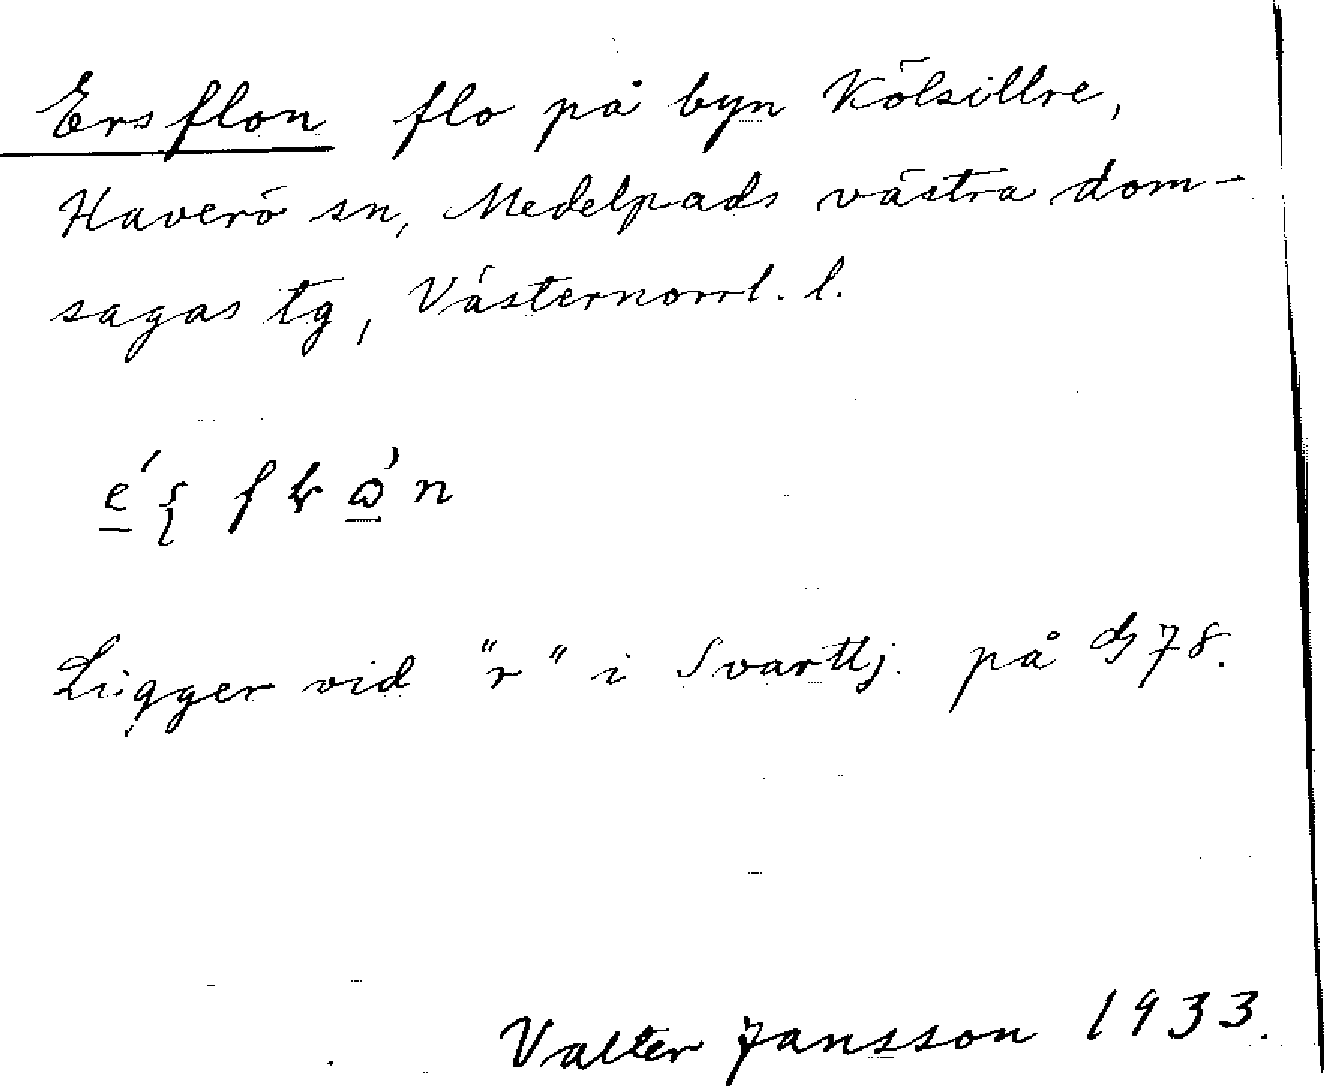 Ersflon flo på byn Kölsillre,
Haverö sn, Medelpads västra dom-
sagas tg, Västernorrl. l.
Ligger vid "r" i Svarttj. på G 78.
Valter Jansson 1933.